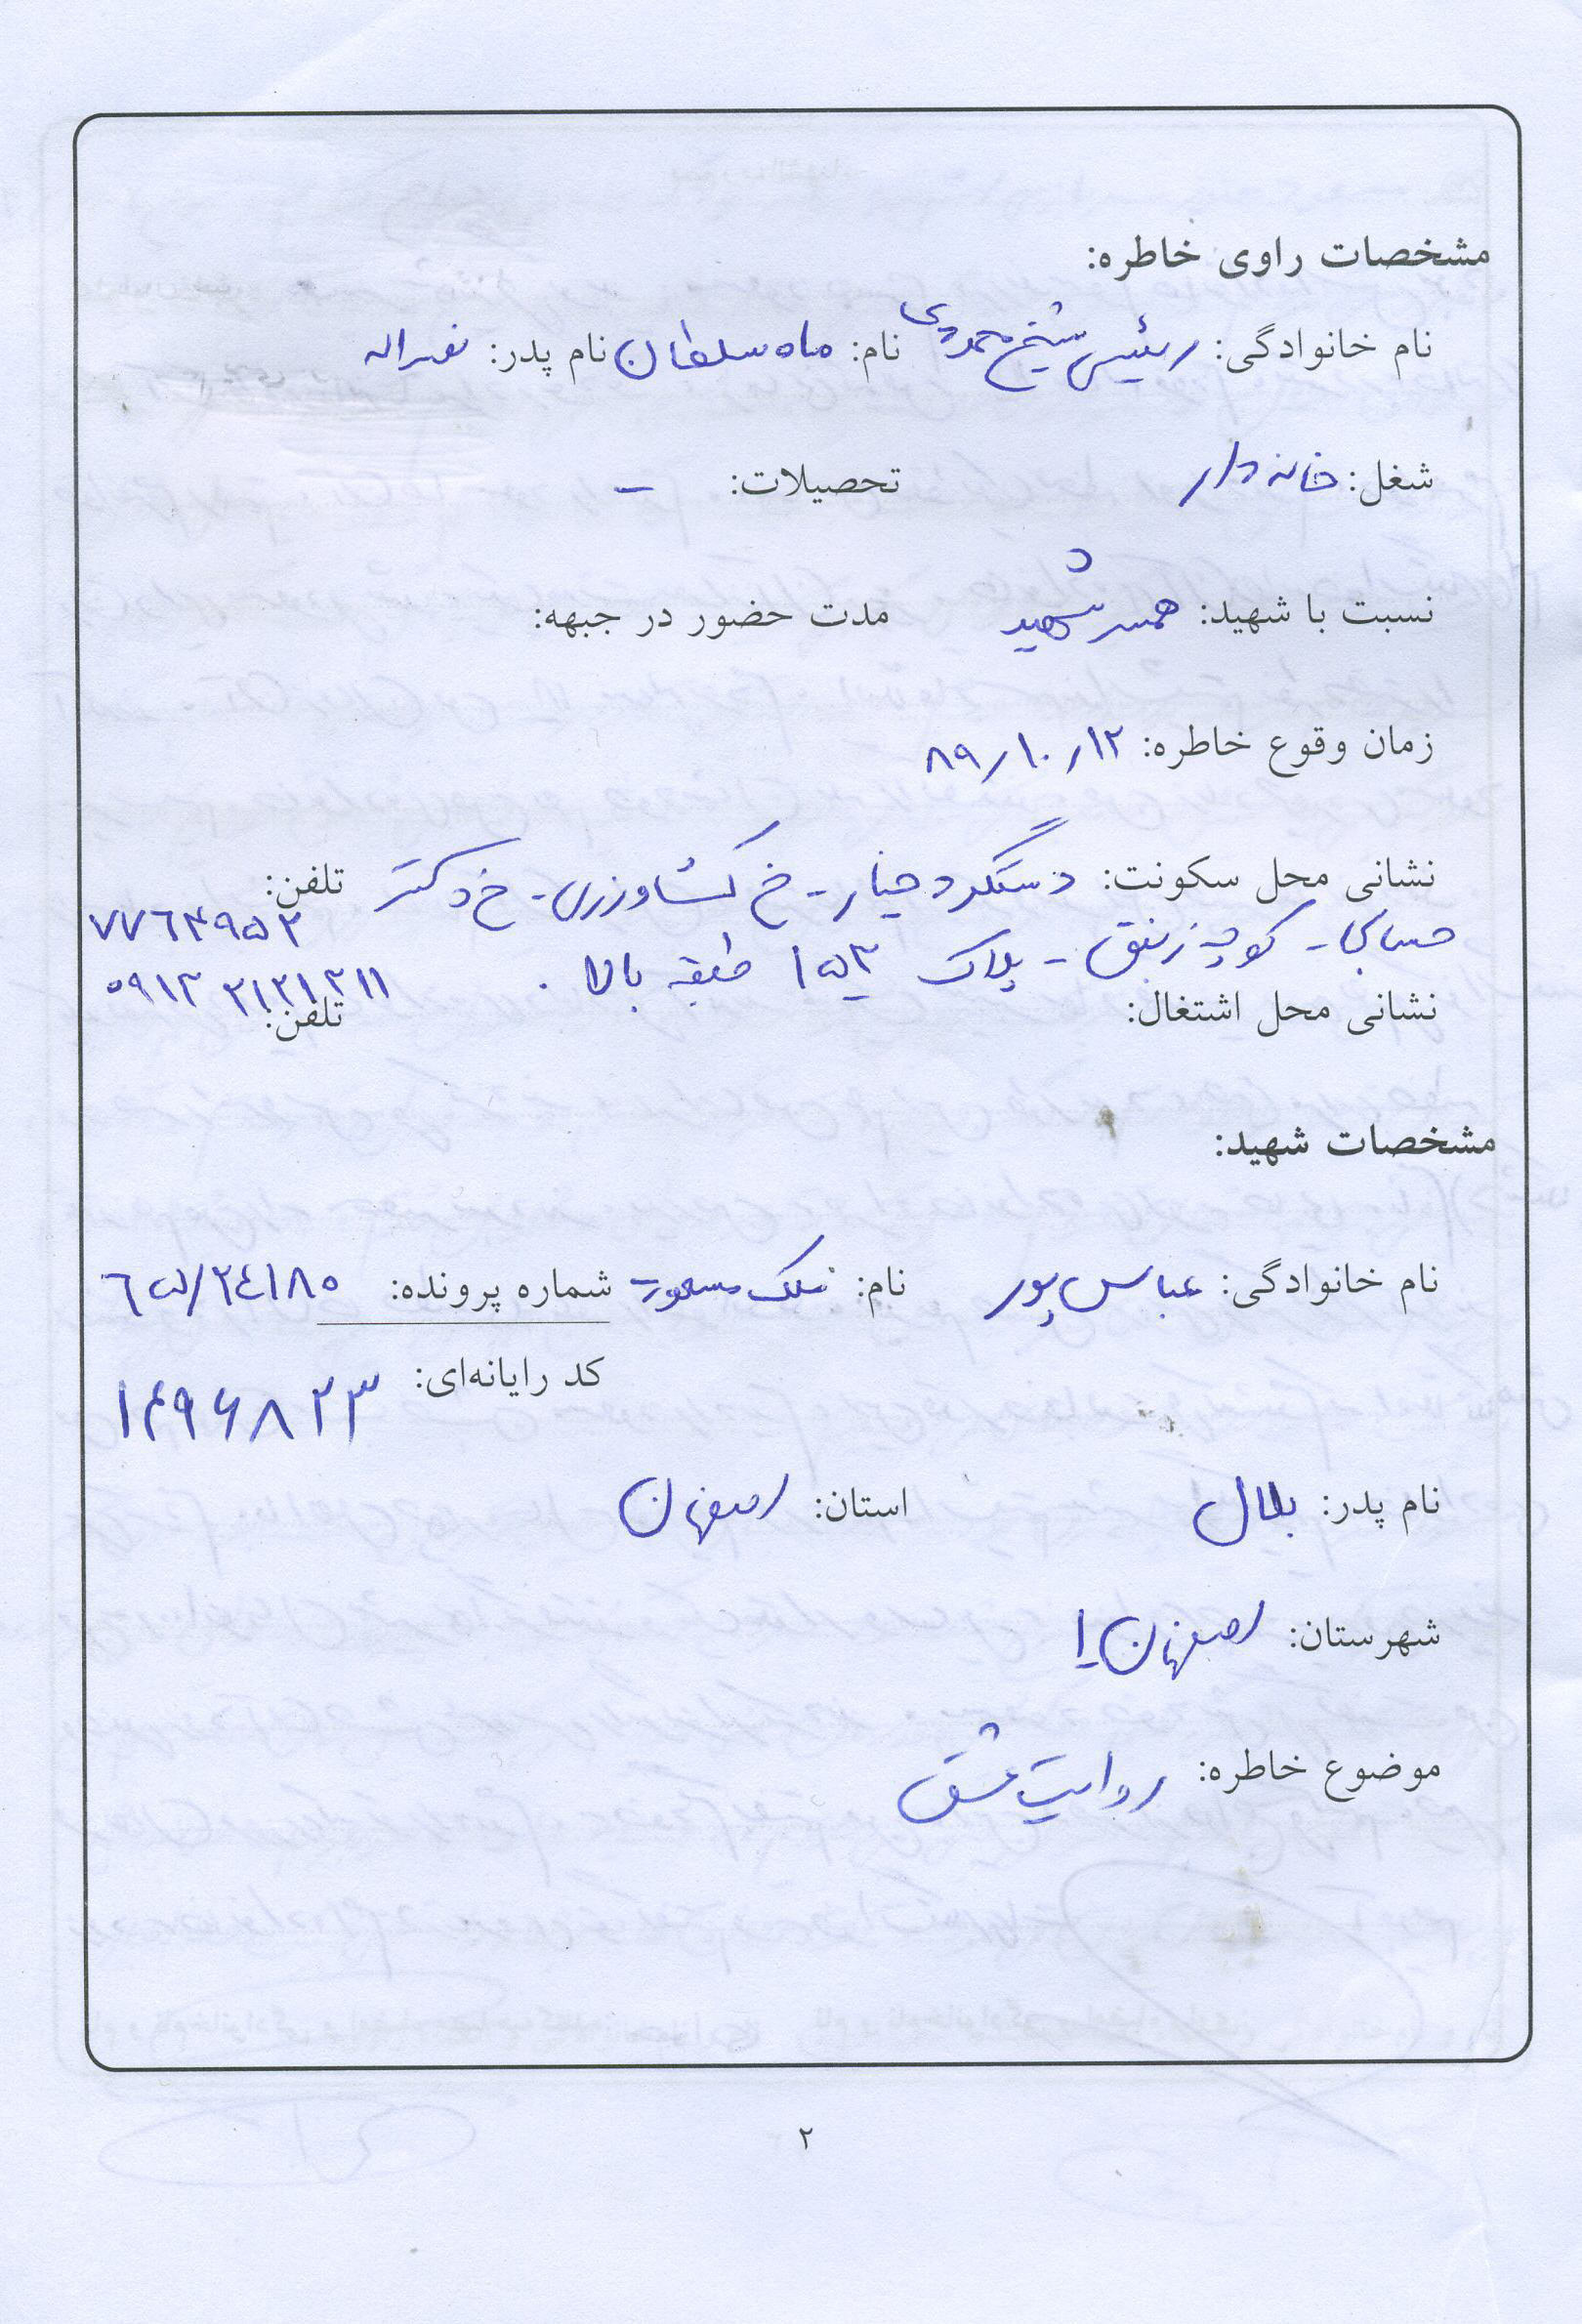 مشخصات راوی خاطره:
نام خانوادگی: رئیسی شیخ محمودی نام: ماه سلطان نام پدر: نصراله
شغل: خانه دار تحصیلات: -
نسبت با شهید: همسر شهید مدت حضور در جبهه:
زمان وقوع خاطره: ۸۹/۱۰/۱۲
نشانی محل سکونت: دستگرد خیار - خ کشاورزی - خ دکتر تلفن:
حسابی - کوچه زنبق - پلاک ۱۵۳ طبقه بالا .
نشانی محل اشتغال: تلفن:
مشخصات شهید:
نام خانوادگی: عباس پور نام: ملک مسعود شماره پرونده: ۶۵/۲۴۱۸۰
کد رایانه‌ای: ۱۴۹۶۸۲۳
نام پدر: بلال استان: اصفهان
شهرستان: اصفهان
موضوع خاطره: روایت عشق
۲